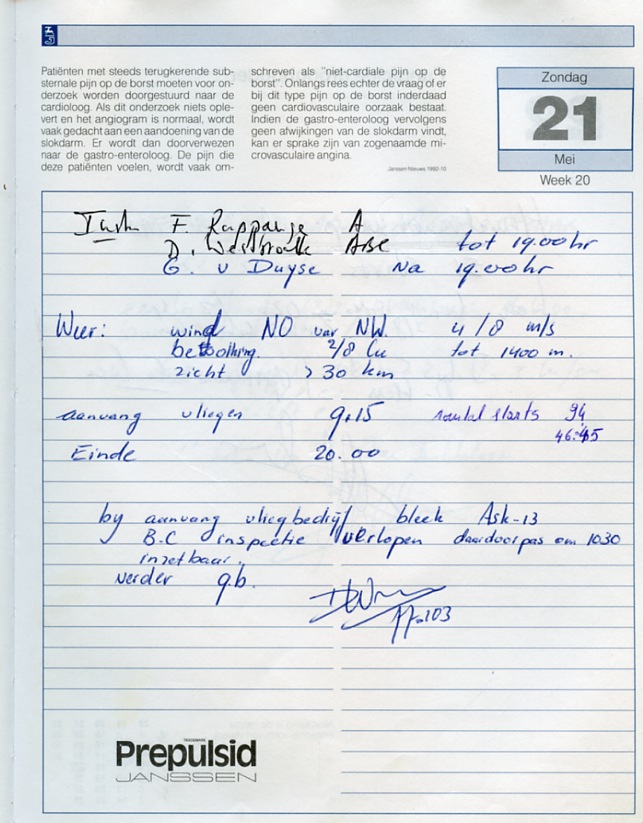 Patiënten met steeds terugkerende sub-
sternale pijn op de borst moeten voor on-
derzoek worden doorgestuurd naar de
cardioloog. Als dit onderzoek niets ople-
vert en het angiogram is normaal, wordt
vaak gedacht aan een aandoening van de
slokdarm. Er wordt dan doorverwezen
naar de gastro-enteroloog. De pijn die
deze patiënten voelen, wordt vaak om-
schreven als "niet-cardiale pijn op de
borst". Onlangs rees echter de vraag of er
bij dit type pijn op de borst inderdaad
geen cardiovasculaire oorzaak bestaat.
Indien de gastro-enteroloog vervolgens
geen afwijkingen van de slokdarm vindt,
kan er sprake zijn van zogenaamde mi-
crovasculaire angina.
Janssen Nieuws 1992-10
Zondag
21
Mei
Week 20
F. Rappange A
D. tot 19.00 hr
G. v Duyse Na 19.00 hr
Weer: wind NO var NW. 4/8 m/s
bewolking. 2/8 Cu tot 1400 m.
zicht > 30 km
aanvang vliegen 9.15 aantal starts 94
46:45
Einde 20.00
by aanvang vliegbedrijf bleek Ask-13
B.C inspectie verlopen daardoor pas om 1030
inzetbaar.
verder g.b.
Prepulsid
JANSSEN